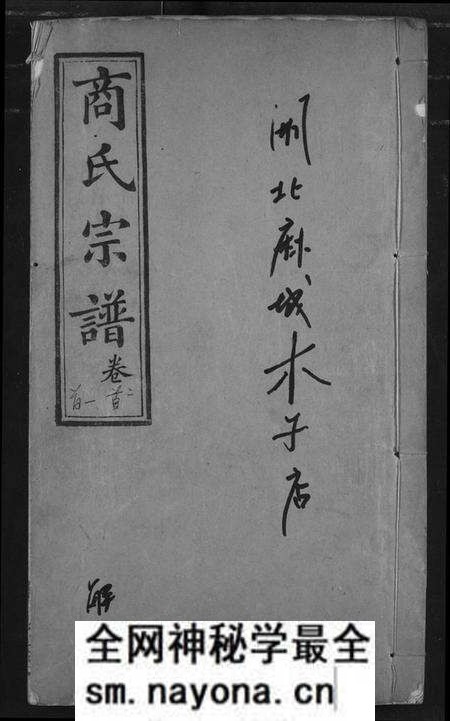 湖北麻城木子店
商氏宗譜
卷首二
首一
解
全网神秘学最全
sm.nayona.cn